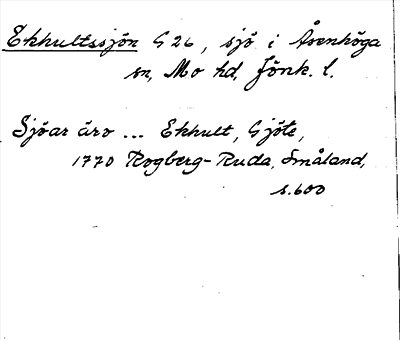 Ekhultssjön G 26, sjö i Åsenhöga
sn, Mo hd, Jönk. l.
Sjöar äro ... Ekhult, Gjöte,
1770 Rogberg-Ruda, Småland,
s.600